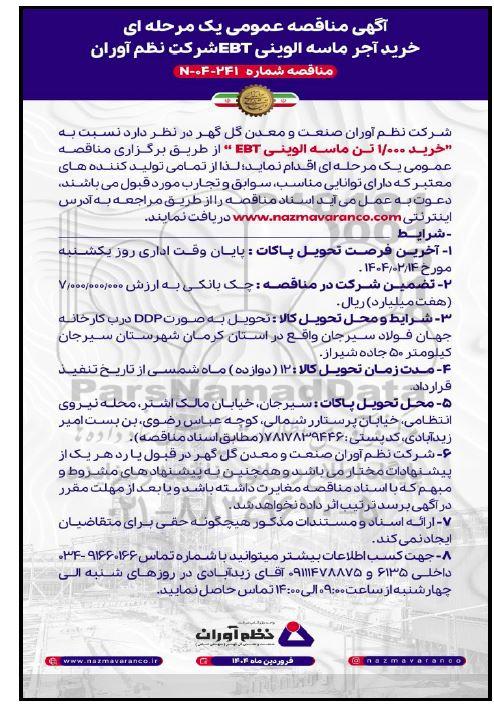 آگهی مناقصه عمومی یک مرحله ای
خرید آجر ماسه الوینی EBT شرکت نظم آوران
مناقصه شماره N-۰۴-۲۴۱
شرکت نظم آوران صنعت و معدن گل گهر در نظر دارد نسبت به
"خرید ۱/۰۰۰ تن ماسه الوینی EBT" از طریق برگزاری مناقصه
عمومی یک مرحله ای اقدام نماید؛ لذا از تمامی تولید کننده های
معتبر که دارای توانایی مناسب، سوابق و تجارب مورد قبول می باشند،
دعوت به عمل می آید اسناد مناقصه را از طریق مراجعه به آدرس
اینترنتی www.nazmavaranco.com دریافت نمایند.
-شرایط
۱- آخرین فرصت تحویل پاکات : پایان وقت اداری روز یکشنبه
مورخ ۱۴۰۴/۰۲/۱۴ .
۲- تضمین شرکت در مناقصه : چک بانکی به ارزش ۷/۰۰۰/۰۰۰/۰۰۰
(هفت میلیارد) ریال.
۳- شرایط و محل تحویل کالا : تحویل به صورت DDP درب کارخانه
جهان فولاد سیرجان واقع در استان کرمان شهرستان سیرجان
کیلومتر ۵۰ جاده شیراز.
۴- مدت زمان تحویل کالا : ۱۲ (دوازده) ماه شمسی از تاریخ تنفیذ
قرارداد.
۵- محل تحویل پاکات : سیرجان، خیابان مالک اشتر، محله نیروی
انتظامی، خیابان پرستار شمالی، کوچه عباس رضوی، بن بست امیر
زیدآبادی، کد پستی : ۷۸۱۷۸۳۹۴۴۶ (مطابق اسناد مناقصه).
۶- شرکت نظم آوران صنعت و معدن گل گهر در قبول یا رد هر یک از
پیشنهادات مختار می باشد و همچنین به پیشنهاد های مشروط و
مبهم که با اسناد مناقصه مغایرت داشته باشد و یا بعد از مهلت مقرر
در آگهی برسد ترتیب اثر داده نخواهد شد.
۷- ارائه اسناد و مستندات مذکور هیچگونه حقی برای متقاضیان
ایجاد نمی کند.
۸- جهت کسب اطلاعات بیشتر میتوانید با شماره تماس ۹۱۶۶۰۱۶۶-۰۳۴
داخلی ۶۱۳۵ و ۰۹۱۱۱۴۷۸۸۷۵ آقای زیدآبادی در روزهای شنبه الی
چهارشنبه از ساعت ۰۹:۰۰ الی ۱۴:۰۰ تماس حاصل نمایید.
نظم آوران
www.nazmavaranco.ir
فروردین ماه ۱۴۰۴
nazmavaranco